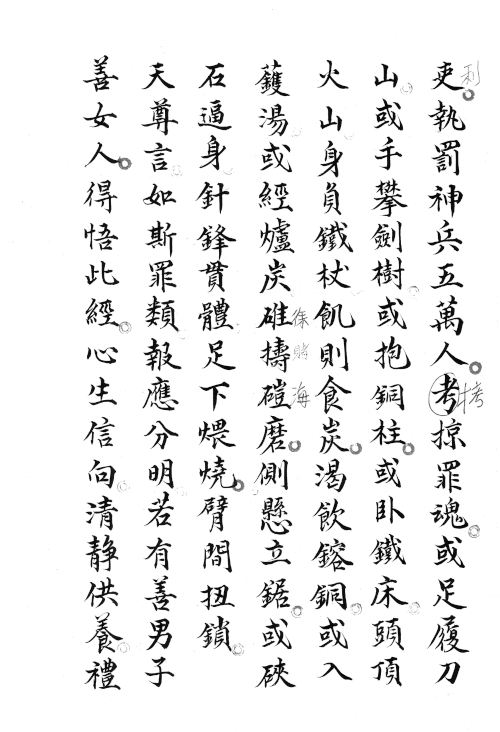 吏執罰神兵五萬人考掠罪魂或足履刀
山或手攀劍樹或抱銅柱或卧鐵床頭頂
火山身負鐵杖飢則食炭渴飲鎔銅或入
鑊湯或經爐炭碓擣磑磨側懸立鋸或硤
石逼身針鋒貫體足下煨燒臂間扭鎖
天尊言如斯罪類報應分明若有善男子
善女人得悟此經心生信向清静供養禮
利
拷
海